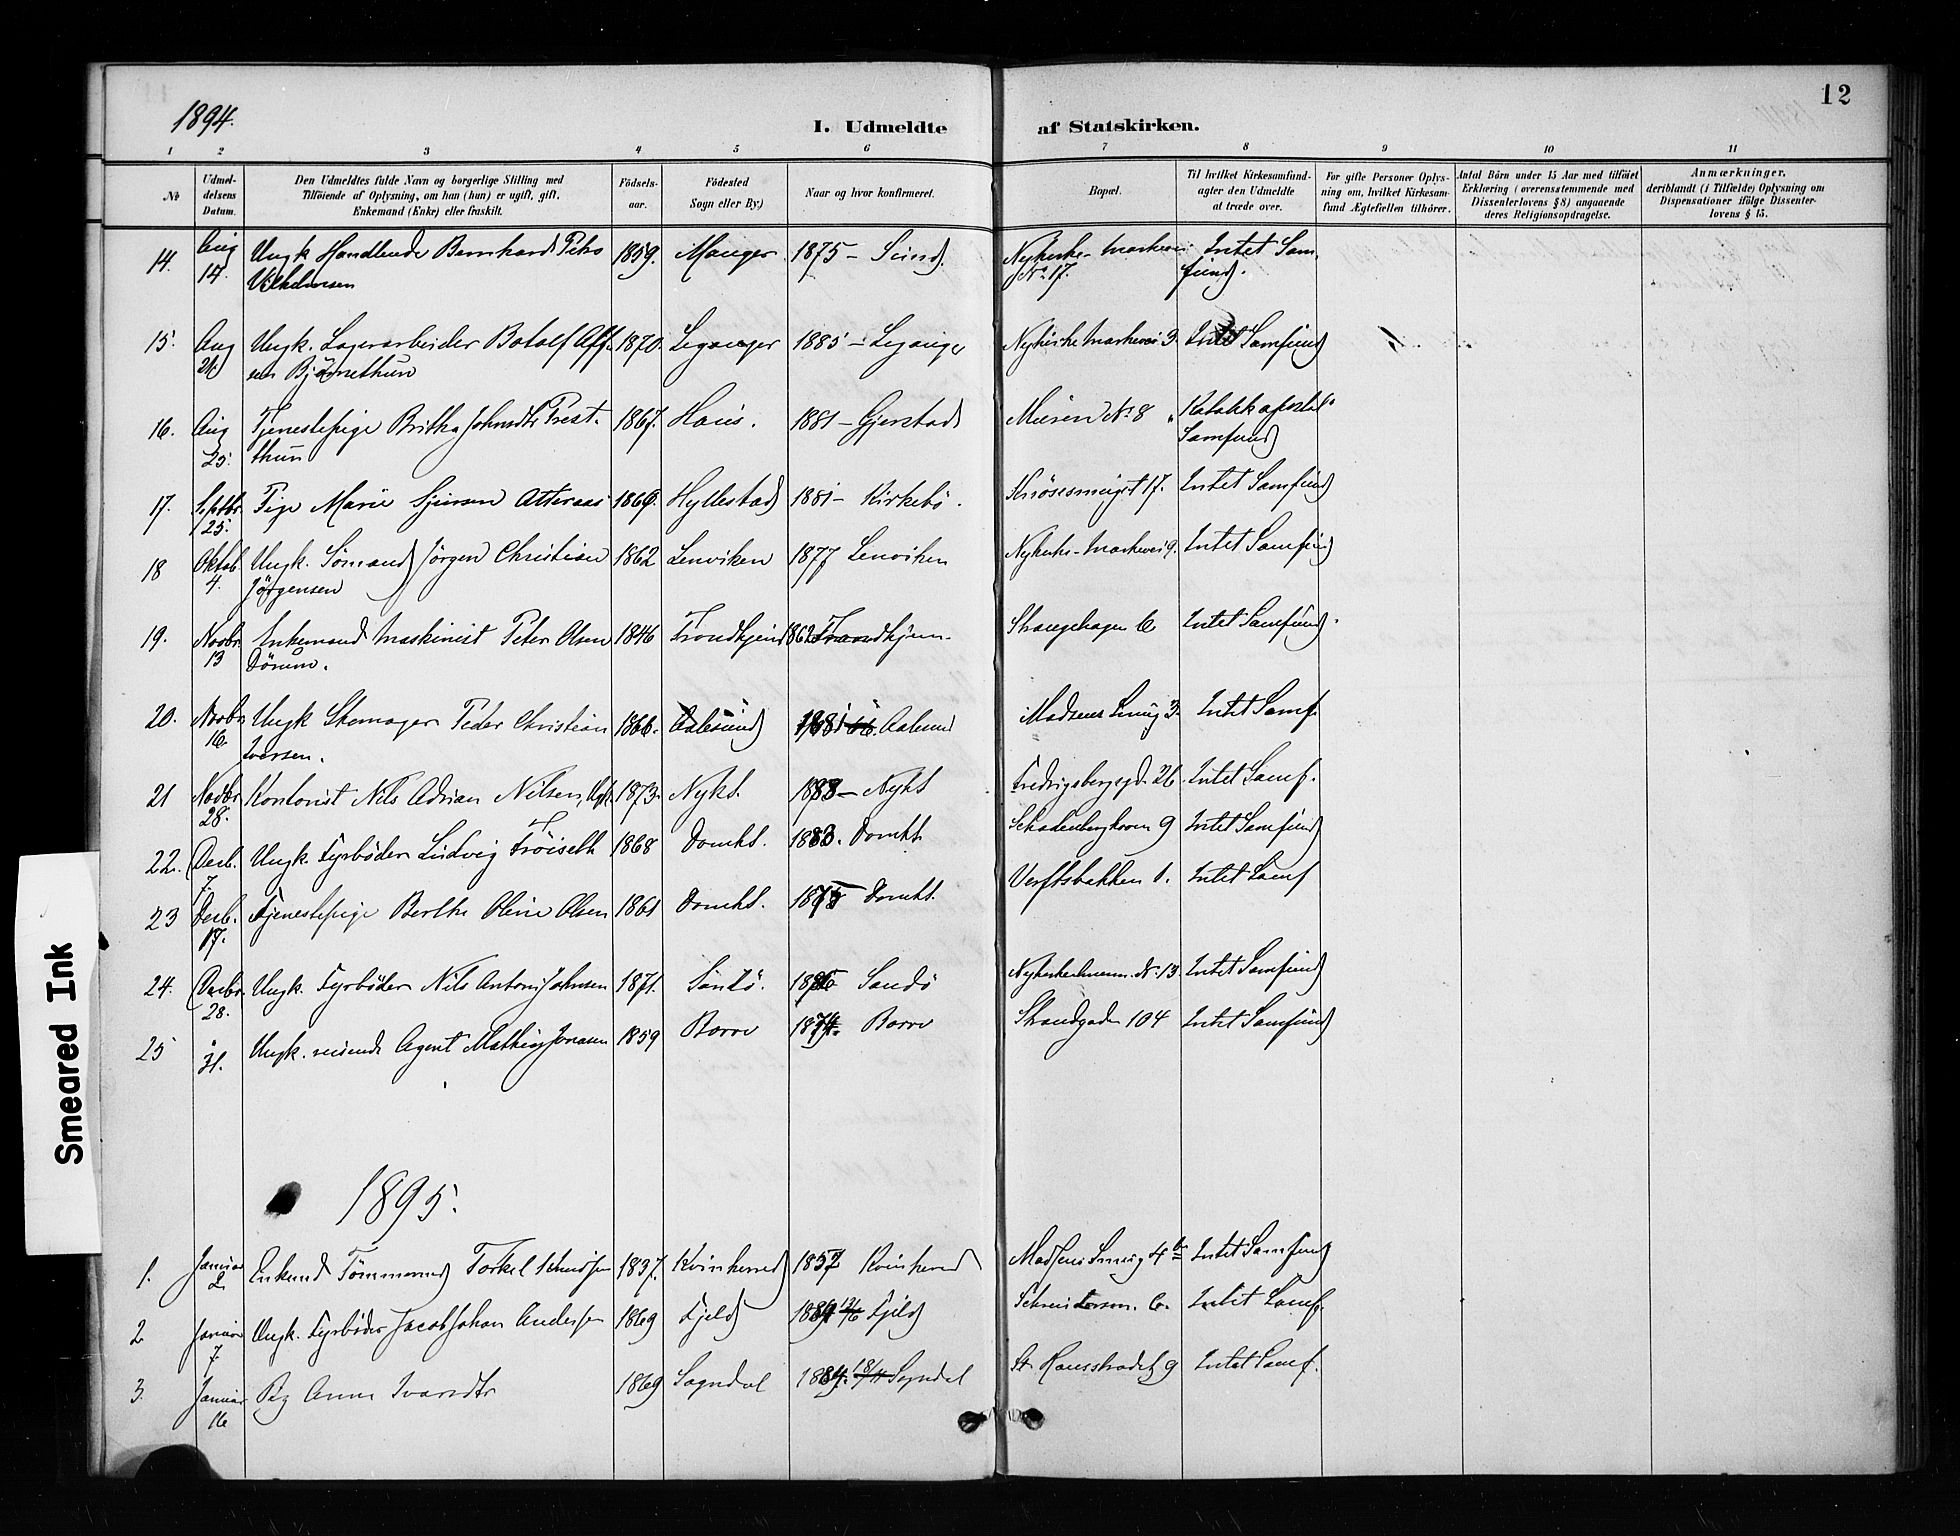 12
1894.
I. Udmeldte af Statskirken.
1 2 3 4 5 6 7 8 9 10 11
No
Udmel-
delsens
Datum.
Den Udmeldtes fulde Navn og borgerlige Stilling med
Tilföiende af Oplysning, om han (hun) er ugift, gift,
Enkemand (Enke) eller fraskilt.
Födsels-
aar.
Födested
Sogn eller By.)
Naar og hvor konfirmeret.
Bopæl.
Til hvilket Kirkesamfund-
agter den Udmeldte
at træde over.
For gifte Personer Oplys-
ning om, hvilket Kirkesam-
fund Ægtefællen tilhörer.
Antal Börn under 15 Aar med tilföiet
Erklæring (overensstemmende med
Dissenterlovens § 8) angaaende
deres Religionsopdragelse.
Anmærkninger,
deriblandt (i Tilfælde) Oplysning om
Dispensationer ifölge Dissenter-
lovens § 15.
14. Aug Ungk Handlende Bernhard Petro 1859. Manger 1875 – Sund. Nykirke- Markevei Intet Sam
14. Vilhelmsen No 17. fund.
15. Aug Ungk. Lagerarbeider Botolf 1870. Leganger 1885 – Leganger Nykirke Markevei 3. Intet Samfund
21. sen Björnethun
16. Aug Tjenestepige Britha Johnsdtr Prest- 1867. Haus. 1881 – Gjerstad Muren No 8 "Katolsk apostol"
25. thun Samfund
17. Septbr. Pige Marie Sjursen Atteraas Hyllestad 1881 – Kirkebö. Knösesmuget 17. Intet Samfund
25.
18 Oktob. Ungk. Sömand Jörgen Christian 1862 Lenviken 1877 Lenviken Nykirke- Markevei 9. Intet Samfund
4. Jörgensen
19. Novbr. Enkemand Maskinist Peter Olsen 1846 Trondhjem 1862 Trondhjem. Strangehagen 6 Intet Samfund.
13 Dörum.
20. Novbr. Ungk Skomager Peder Christian 1866. Aalesund 1881 Aalesund Madsens Smug 3. Intet Samf.
16. Iversen.
21 Novbr Kontorist Nils Adrian Nilsen, Ugk. 1873. Nykt. 1888 – Nykt Fredrigsbergsgd. 26. Intet Samf.
28.
22. Decb. Ungk. Fyrböder Ludvig Tröiseth 1868 Domkt. 1883. Domkt. 9 Intet Samfund
7.
23 Decb. Tjenestepige Berthe Oline Olsen 1861 Domkt. 1875 Domkt. Verftsbakken 1. Intet Samf
17.
24. Decbr. Ungk. Fyrböder Nils Anton Johnsen 1871. Sandö. 1886 Sandö No 13. Intet Samfund
28.
25 " Ungk. reisende Agent Mathias Jonasen 1859 Borre 1874. Borre Strandgaden 104 Intet Samfund
31.
1895.
1. Januar Enkemd Tömmermd Torkel 1837. Kvinherred 1852 Kvinherred Madsens Smug 4 b Intet Samfund
2.
2 Januar Ungk. Fyrböder Jacob Johan Andersen 1869 Fjeld 1884 Fjeld 6. Intet Samf.
7.
3. Januar Pig Anna Ivarsdtr 1869 Sogndal 1884. Sogndal St. Hansstrædet 9 Intet Samf.
16
Smeared Ink